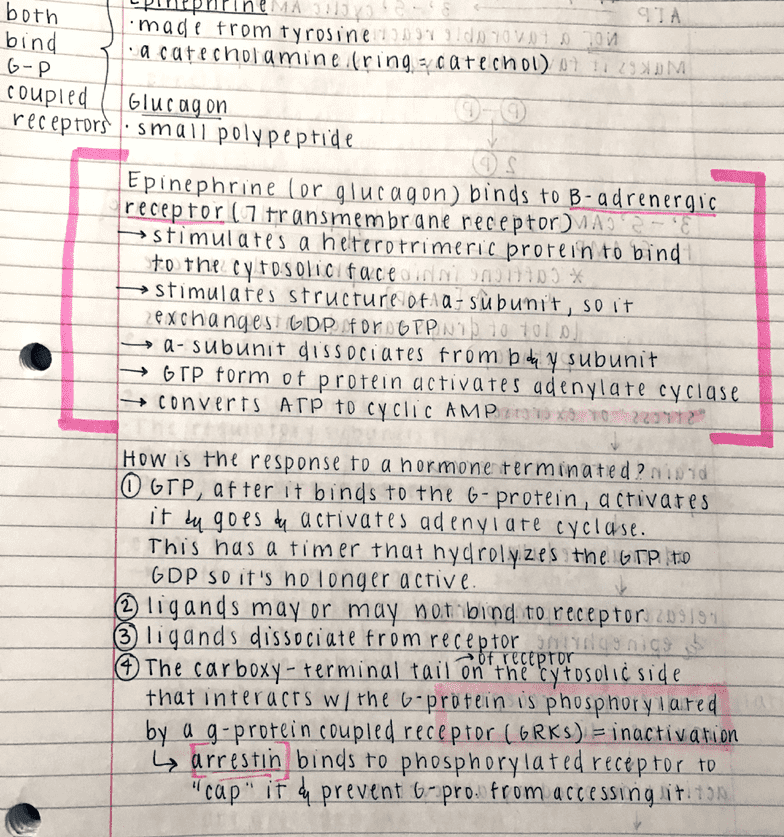 both
bind
G-P
coupled
receptors
Epinephrine
· made from tyrosine
· a catecholamine (ring = catechol)
Glucagon
· small polypeptide
Epinephrine (or glucagon) binds to B-adrenergic
receptor (7 transmembrane receptor)
→ stimulates a heterotrimeric protein to bind
to the cytosolic face
→ stimulates structure of a-subunit, so it
exchanges GDP for GTP
→ a-subunit dissociates from b & y subunit
→ GTP form of protein activates adenylate cyclase
→ converts ATP to cyclic AMP
How is the response to a hormone terminated?
① GTP, after it binds to the G-protein, activates
it & goes & activates adenylate cyclase.
This has a timer that hydrolyzes the GTP to
GDP so it's no longer active.
② ligands may or may not bind to receptor
③ ligands dissociate from receptor
→ of receptor
④ The carboxy-terminal tail on the cytosolic side
that interacts w/ the G-protein is phosphorylated
by a g-protein coupled receptor (GRKs) = inactivation
↳ arrestin binds to phosphorylated receptor to
"cap" it & prevent G-pro. from accessing it.